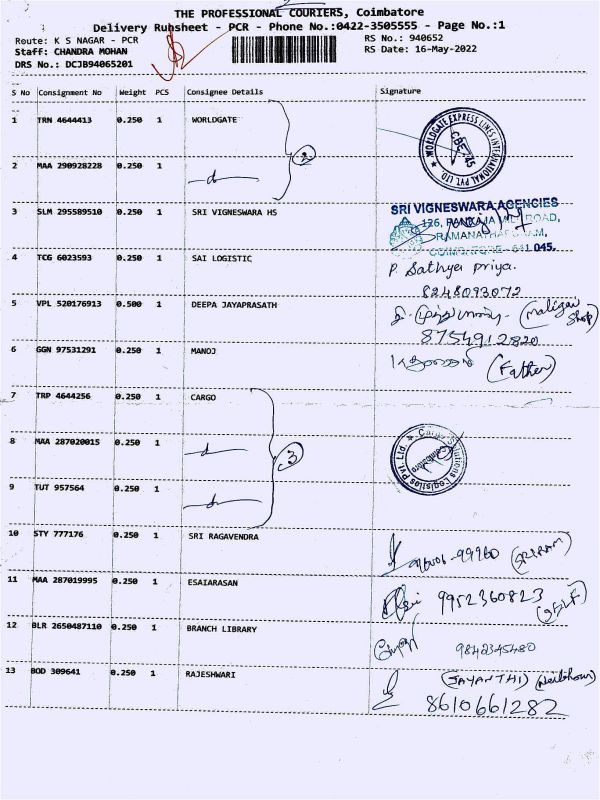 THE PROFESSIONAL COURIERS, Coimbatore
Delivery Runsheet - PCR - Phone No.:0422-3505555 - Page No.:1
Route: K S NAGAR - PCR
RS No.: 940652
Staff: CHANDRA MOHAN
RS Date: 16-May-2022
DRS No.: DCJB94065201
S No Consignment No Weight PCS Consignee Details Signature
1 TRN 4644413 0.250 1 WORLDGATE
WORLDGATE EXPRESS LINES INTERNATIONAL PVT. LTD.
CBE
2
2 MAA 290928228 0.250 1
3 SLM 295589510 0.250 1 SRI VIGNESWARA HS
SRI VIGNESWARA AGENCIES
126, PANKAJA MILL ROAD,
RAMANATHAPURAM,
COIMBATORE - 641 045.
4 TCG 6023593 0.250 1 SAI LOGISTIC
P. Sathya priya.
8248093072
5 VPL 520176913 0.500 1 DEEPA JAYAPRASATH
(Maligai Shop)
8754912820
6 GGN 97531291 0.250 1 MANOJ
(Father)
7 TRP 4644256 0.250 1 CARGO
Cargo Solutions Logistics Pvt. Ltd.
Coimbatore
8 MAA 287020015 0.250 1
3
9 TUT 957564 0.250 1
10 STY 777176 0.250 1 SRI RAGAVENDRA
96006-99960 (SRIRAM)
11 MAA 287019995 0.250 1 ESAIARASAN
9952360823 (SELF)
12 BLR 2650487110 0.250 1 BRANCH LIBRARY
9842345480
13 BOD 309641 0.250 1 RAJESHWARI
(JAYANTHI) (Neibhour)
8610661282